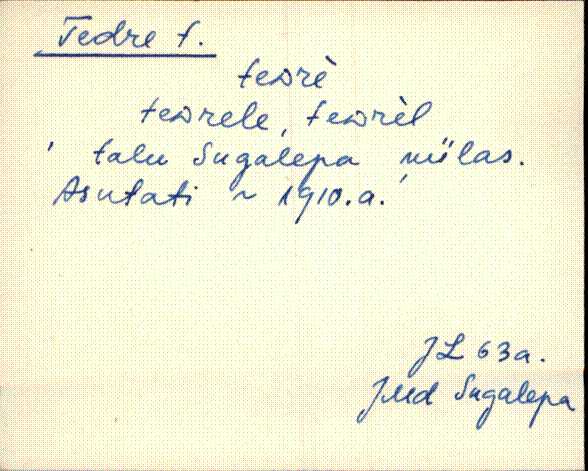 Tedre t.
teᴅrè
teᴅrele, teᴅrèl
' talu Sugalepa külas.
Asutati ~ 1910.a.'
JL 63a.
JMd Sugalepa